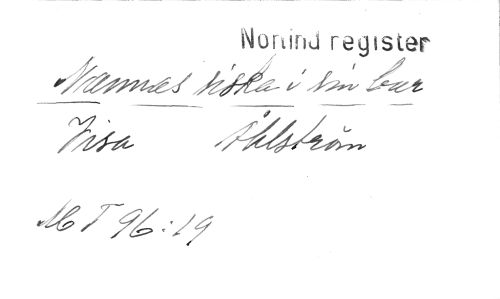 Norlind register
Nannas siska i sin bur
Visa Åhlström
MT 96:19